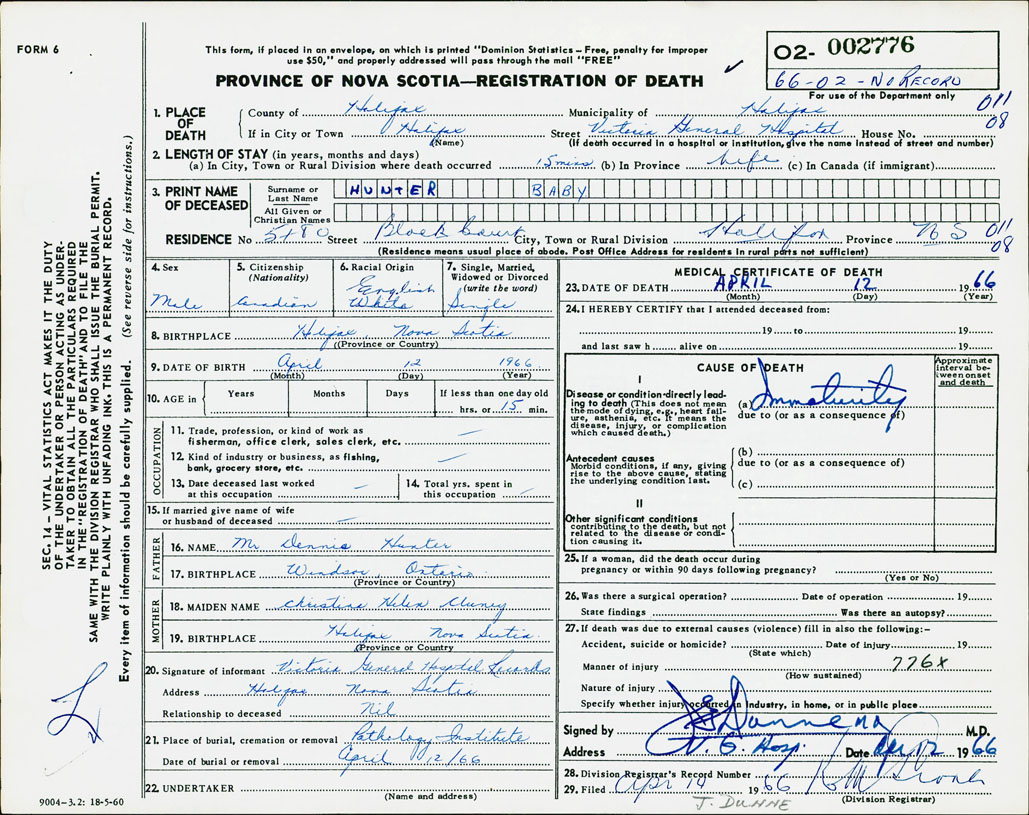 FORM 6
This form, if placed in an envelope, on which is printed "Dominion Statistics – Free, penalty for improper
use $50," and properly addressed will pass through the mail "FREE"
PROVINCE OF NOVA SCOTIA—REGISTRATION OF DEATH
O2- 002776
66-02-No RECORD
For use of the Department only
011
08
1. PLACE OF DEATH
County of Halifax Municipality of Halifax
If in City or Town Halifax Street Victoria General Hospital House No.
(Name) (If death occurred in a hospital or institution, give the name instead of street and number)
2. LENGTH OF STAY (in years, months and days)
(a) In City, Town or Rural Division where death occurred 15 mins (b) In Province life (c) In Canada (if immigrant)
3. PRINT NAME OF DECEASED
Surname or Last Name HUNTER BABY
All Given or Christian Names
RESIDENCE No 5780 Street Black Court City, Town or Rural Division Halifax Province N S 011
08
(Residence means usual place of abode. Post Office Address for residents in rural parts not sufficient)
4. Sex Male
5. Citizenship (Nationality) Canadian
6. Racial Origin English White
7. Single, Married, Widowed or Divorced (write the word) Single
8. BIRTHPLACE Halifax, Nova Scotia
(Province or Country)
9. DATE OF BIRTH April 12 1966
(Month) (Day) (Year)
10. AGE in Years Months Days If less than one day old
hrs. or 15 min.
OCCUPATION
11. Trade, profession, or kind of work as
fisherman, office clerk, sales clerk, etc. —
12. Kind of industry or business, as fishing,
bank, grocery store, etc. —
13. Date deceased last worked
at this occupation —
14. Total yrs. spent in
this occupation —
15. If married give name of wife
or husband of deceased —
FATHER
16. NAME Mr Dennis Hunter
17. BIRTHPLACE Windsor, Ontario
(Province or Country)
MOTHER
18. MAIDEN NAME Christina Helen Cluney
19. BIRTHPLACE Halifax Nova Scotia
(Province or Country)
20. Signature of informant Victoria General Hospital Records
Address Halifax Nova Scotia
Relationship to deceased Nil
21. Place of burial, cremation or removal Pathology Institute
Date of burial or removal April 12/66
22. UNDERTAKER
(Name and address)
MEDICAL CERTIFICATE OF DEATH
23. DATE OF DEATH APRIL 12 1966
(Month) (Day) (Year)
24. I HEREBY CERTIFY that I attended deceased from:
19 to 19
and last saw h alive on 19
CAUSE OF DEATH
Approximate interval between onset and death
I
Disease or condition-directly leading to death (This does not mean the mode of dying, e.g., heart failure, asthenia, etc. It means the disease, injury, or complication which caused death.)
(a) Immaturity
due to (or as a consequence of)
Antecedent causes
Morbid conditions, if any, giving rise to the above cause, stating the underlying condition last.
(b)
due to (or as a consequence of)
(c)
II
Other significant conditions
contributing to the death, but not related to the disease or condition causing it.
25. If a woman, did the death occur during
pregnancy or within 90 days following pregnancy?
(Yes or No)
26. Was there a surgical operation? Date of operation 19
State findings Was there an autopsy?
27. If death was due to external causes (violence) fill in also the following:–
Accident, suicide or homicide? Date of injury 19
(State which)
Manner of injury 776X
(How sustained)
Nature of injury
Specify whether injury occurred in Industry, in home, or in public place
Signed by Dunne MD M.D.
Address V. G. Hosp. Date Apr 12 1966
28. Division Registrar's Record Number
29. Filed Apr 14 1966
(Division Registrar)
J. DUNNE
SEC. 14 – VITAL STATISTICS ACT MAKES IT THE DUTY
OF THE UNDERTAKER OR PERSON ACTING AS UNDER-
TAKER TO OBTAIN ALL THE PARTICULARS REQUIRED
IN THE "REGISTRATION OF DEATH" AND TO FILE THE
SAME WITH THE DIVISION REGISTRAR WHO SHALL ISSUE THE BURIAL PERMIT.
WRITE PLAINLY WITH UNFADING INK. THIS IS A PERMANENT RECORD.
Every item of information should be carefully supplied. (See reverse side for instructions.)
9004–3.2: 18-5-60